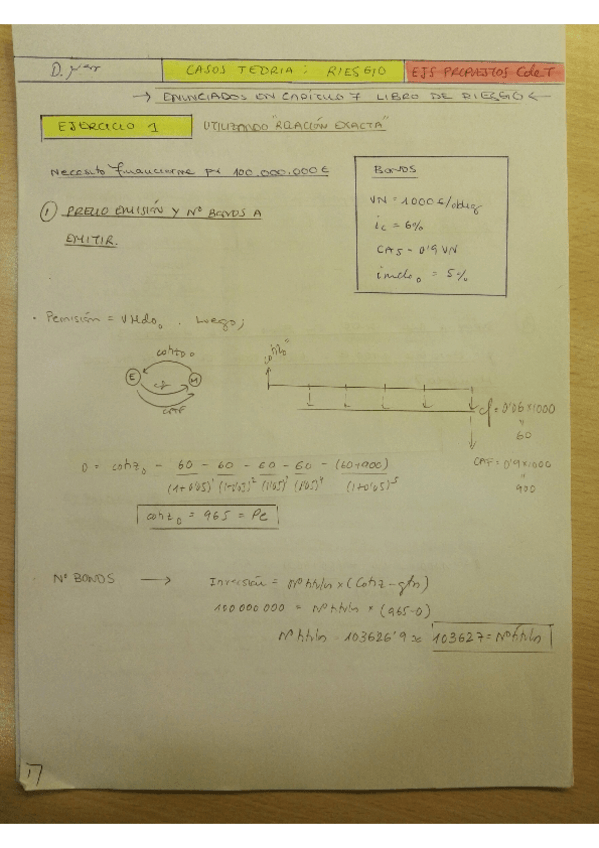 CASOS TEORIA: RIESGO
EJS PROPUESTOS CdeT
→ ENUNCIADOS EN CAPÍTULO 7 LIBRO DE RIESGO ←
EJERCICIO 1
UTILIZANDO "RELACIÓN EXACTA"
Necesito financiarme por 100.000.000€
BONOS
VN = 1000€/oblig
ic = 6%
CA5 = 0'9 VN
= 5%
① PRECIO EMISIÓN Y Nº BONOS A
EMITIR.
· Pemisión = VMdo₀. Luego;
cotiz₀
E
M
cf
CAF
cotiz₀
cf = 0'06×1000
"
60
CAF = 0'9×1000
"
900
0 = cotiz₀ - 60 - 60 - 60 - 60 - (60+900)
(1+0'05)¹ (1+0'05)² (1'05)³ (1'05)⁴ (1+0'05)⁵
cotiz₀ = 965 = Pe
· Nº BONOS → Inversión = Nº títulos × (Cotiz - gtos)
100 000 000 = Nº títulos × (965-0)
Nº títulos = 103626'9 ≈ 103627 = Nº títulos